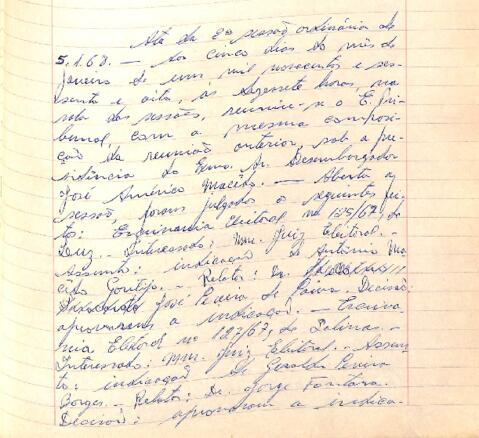 Ata da 2ª sessão ordinária de
5.1.68. — Aos cinco dias do mês de
janeiro de um mil novecentos e ses-
senta e oito, às dezessete horas, na
sala das sessões, reuniu-se o E. Tri-
bunal, com a mesma composi-
ção da reunião anterior, sob a pre-
sidência do Exmo. Sr. Desembargador
José Américo Macêdo. — Aberta a
sessão, foram julgados os seguintes fei-
tos: Escrivania Eleitoral nº 125/67, de
Luz. - Interessado: MM. Juiz Eleitoral. -
Assunto: indicação de Antônio Ma-
cedo Gontijo. - Relator: Dr.
José Pereira de Paiva. Decisão:
aprovaram a indicação. — Escriva-
nia Eleitoral nº 127/67, de
Interessado: MM. Juiz Eleitoral. - Assun-
to: indicação de Geraldo Pereira
Borges. - Relator: Dr. Jorge Fontana.
Decisão: aprovaram a indica-